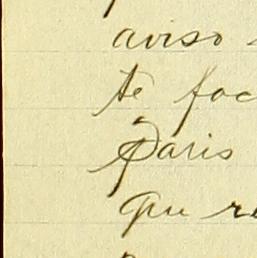 aviso
te foc
Paris
que re